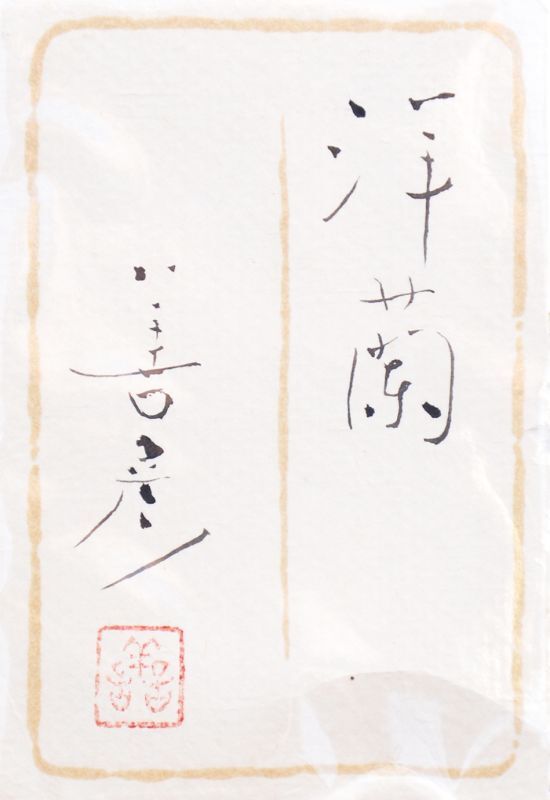 洋蘭
善彦